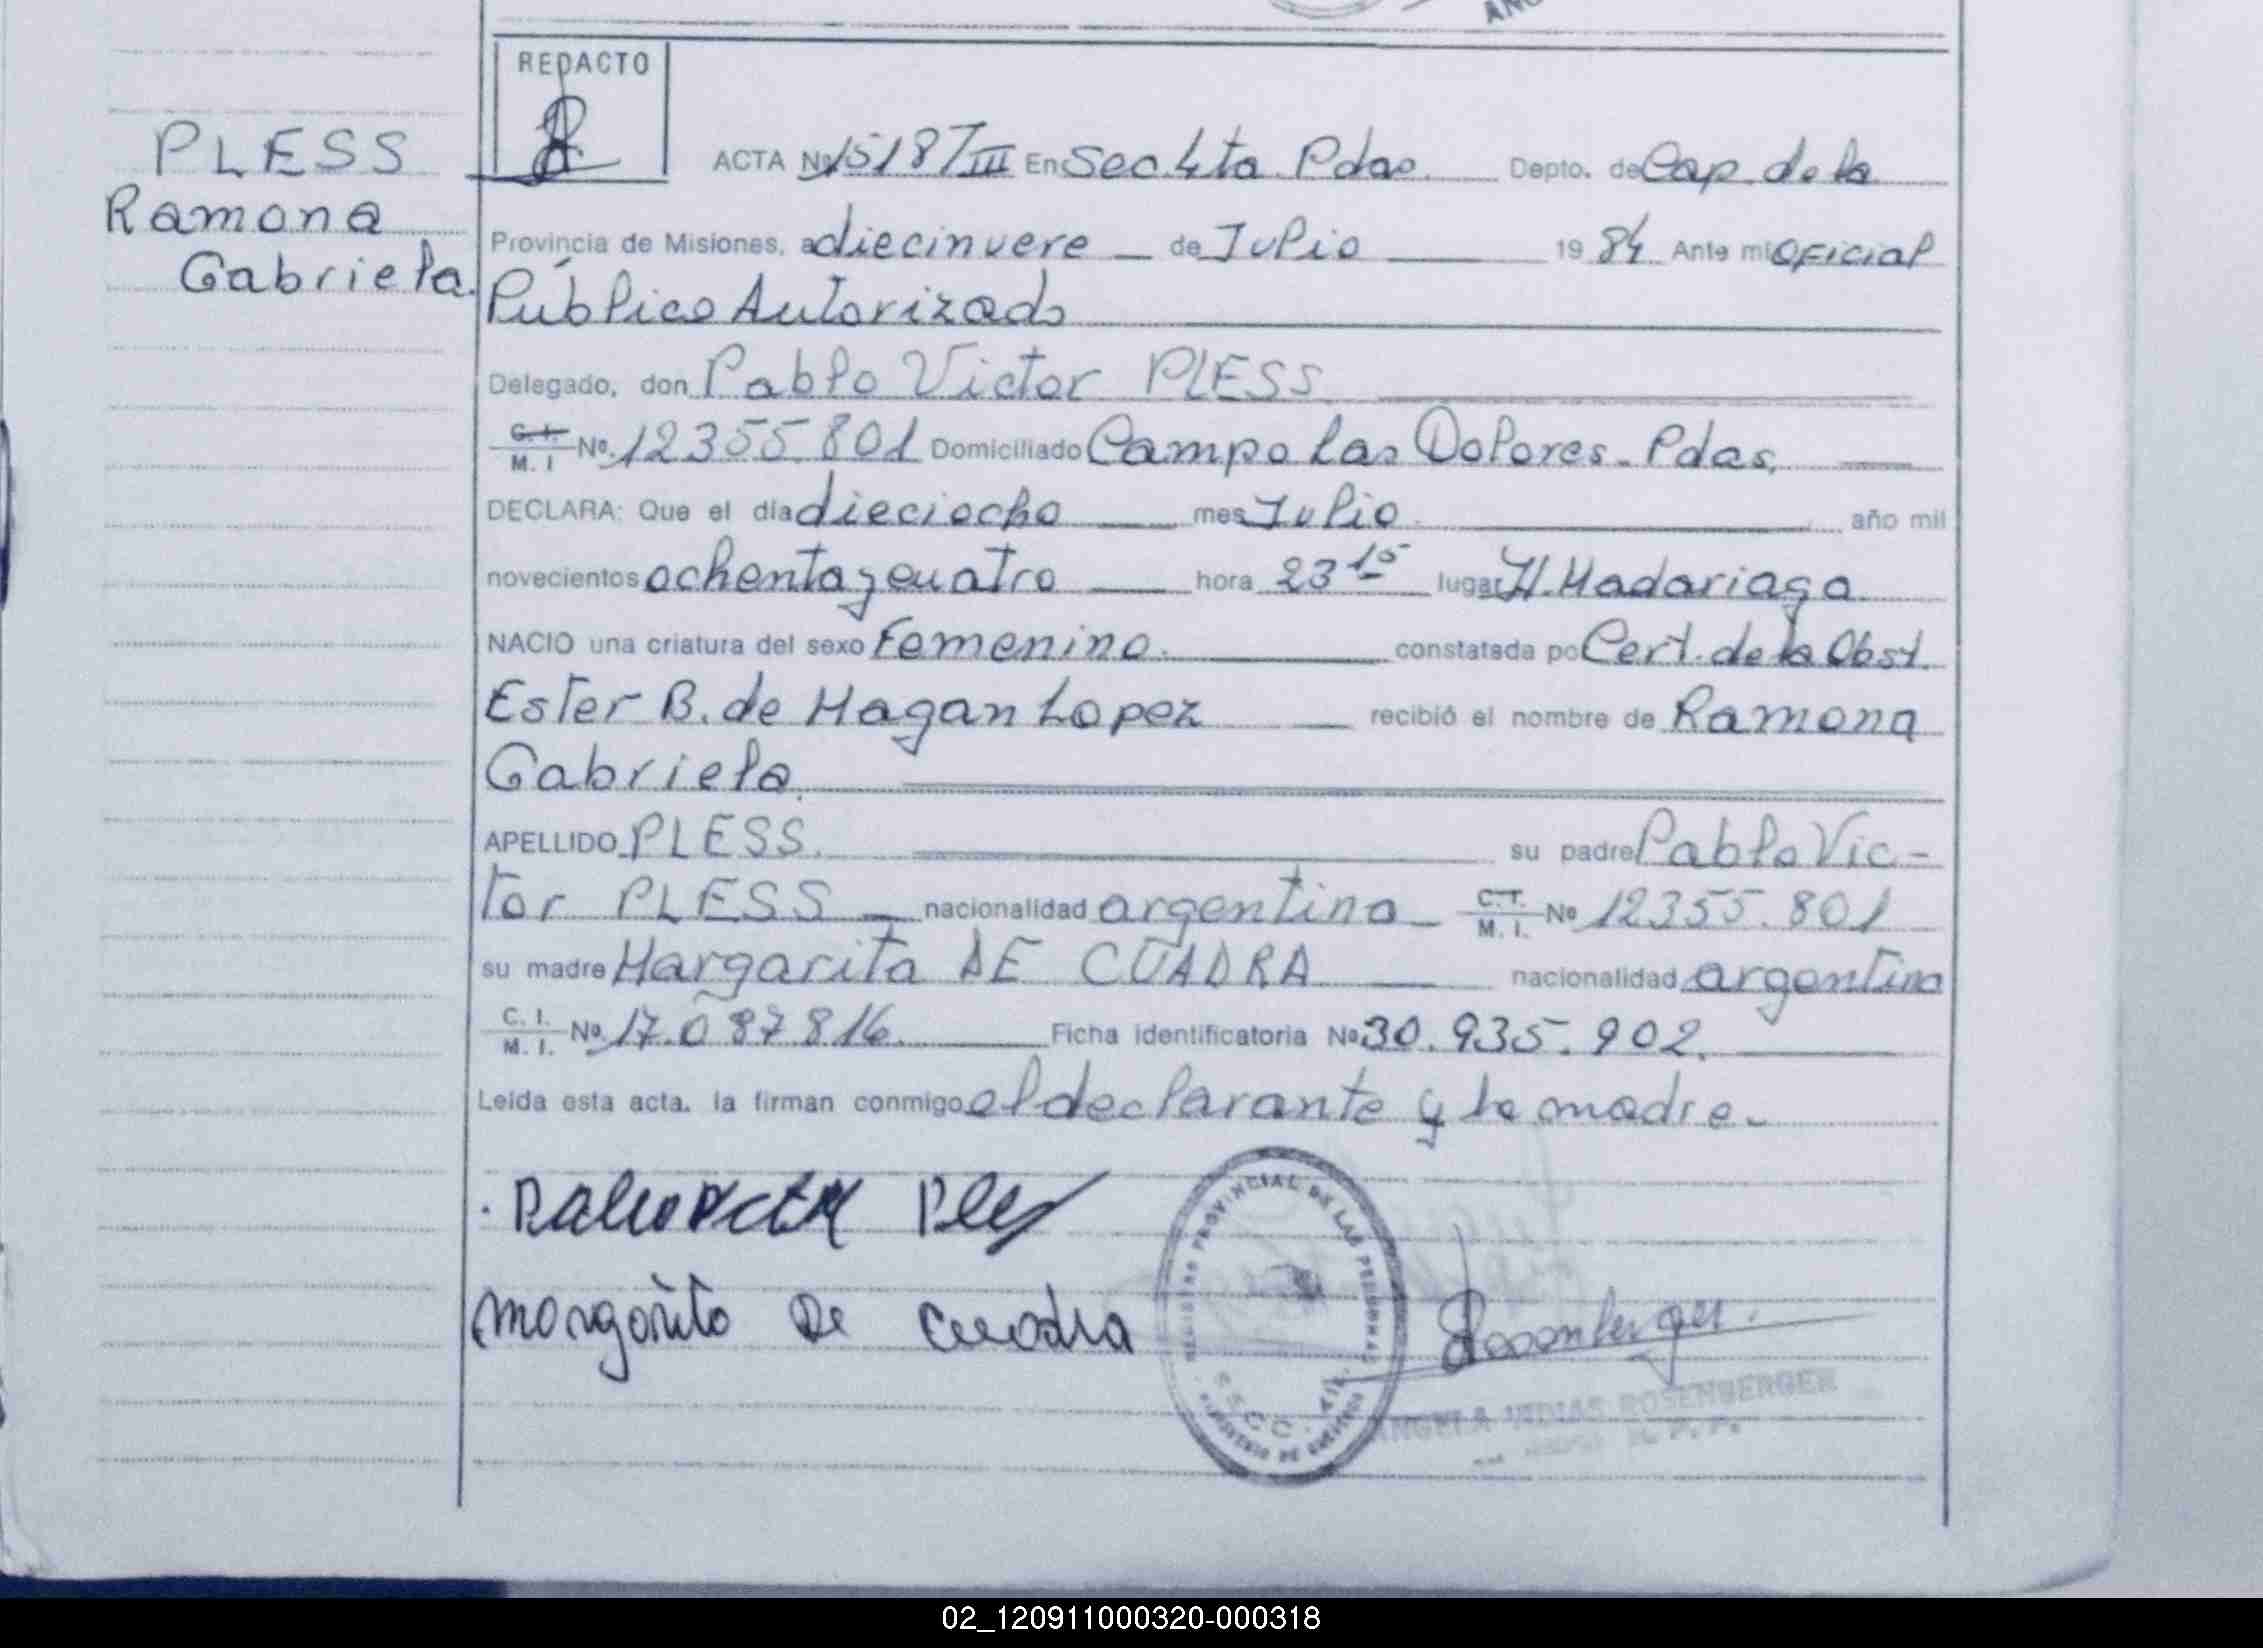 REDACTO
PLESS
Ramona
Gabriela.
ACTA Nº 15187/III En Sec 4ta Pdas. Depto. de Cap. de la
Provincia de Misiones, a diecinueve de Julio 19 84 Ante mi Oficial
Público Autorizado
Delegado, don Pablo Victor PLESS
C.I. M. I Nº. 12355.801 Domiciliado Campo las Dolores - Pdas.
DECLARA: Que el día dieciocho mes Julio año mil
novecientos ochenta y cuatro hora 23 15 lugar H. Madariaga
NACIO una criatura del sexo Femenino. constatada po Cert. de la Obst.
Ester B. de Magan Lopez recibió el nombre de Ramona
Gabriela.
APELLIDO PLESS. su padre Pablo Vic-
tor PLESS nacionalidad argentina C.I. M. I. Nº 12355.801
su madre Margarita DE CUADRA nacionalidad argentina
C. I. M. I. Nº. 17.087.816. Ficha identificatoria Nº 30.935.902.
Leída esta acta. la firman conmigo el declarante y la madre.
Pablo Victor Pless
Margarita De Cuadra
REGISTRO PROVINCIAL DE LAS PERSONAS
SECC.
Rosenberger.
ANGELA ROSENBERGER
02_120911000320-000318